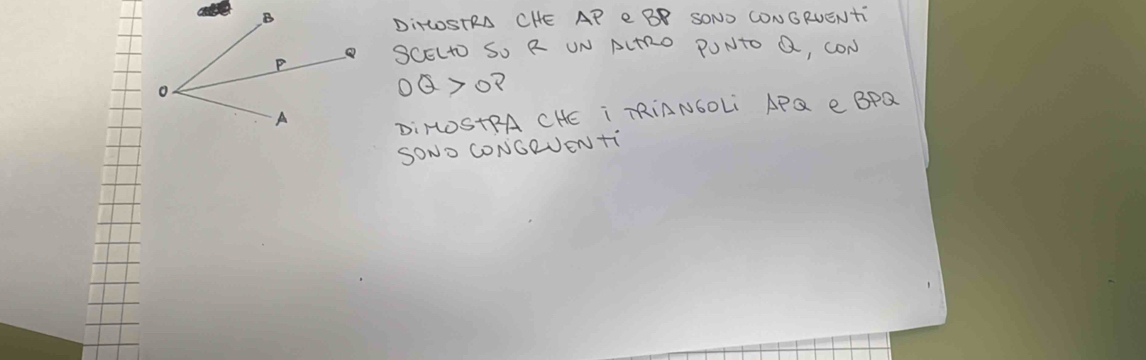 B
P
Q
O
A
DIMOSTRA CHE AP e BP SONO CONGRUENTi
SCELTO SU R UN ALTRO PUNTO Q, CON
OQ > OP
DiMOSTRA CHE i TRiANGOLi APQ e BPQ
SONO CONGRUENTi